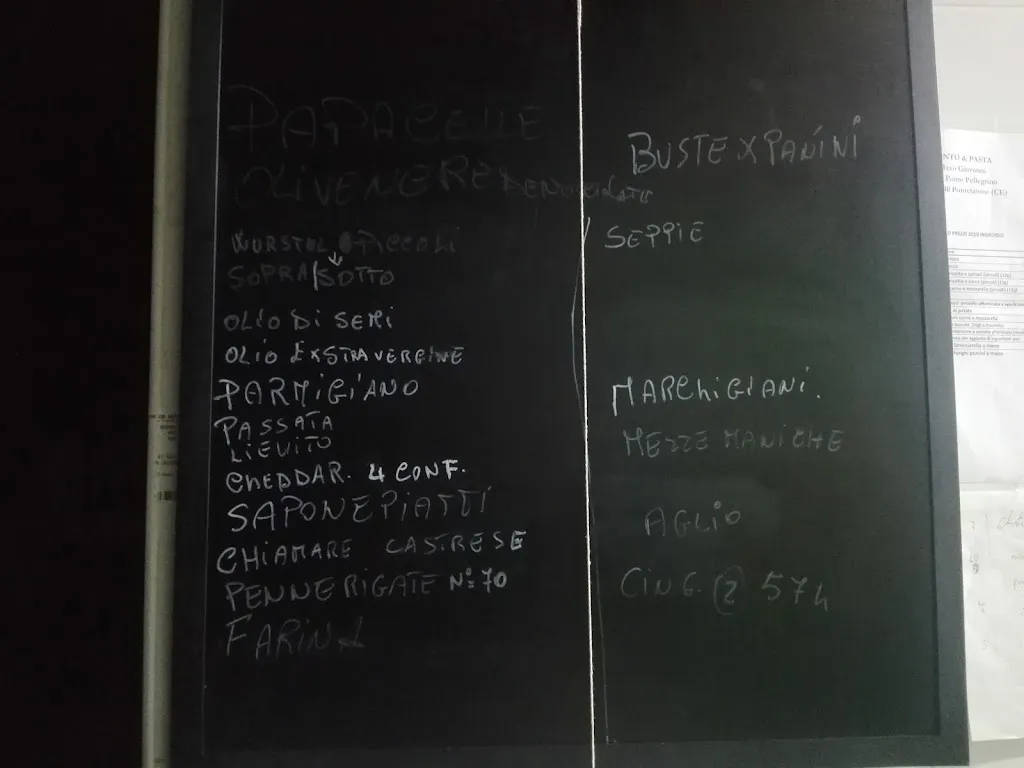 PAPACELLE
OLIVE NERE DENOCCIOLATE
WURSTEL PICCOLI
SOPRA/SOTTO
OLIO DI SEMI
OLIO EXSTRAVERGINE
PARMIGIANO
PASSATA
LIEVITO
CHEDDAR. 4 CONF.
SAPONE PIATTI
CHIAMARE CASTRESE
PENNE RIGATE N° 70
FARINA
BUSTE X PANINI
SEPPIE
MARCHIGIANI.
MEZZE MANICHE
AGLIO
CING. 2 574
NTO & PASTA
Ponte Pellegrino
Pontelatone (CE)